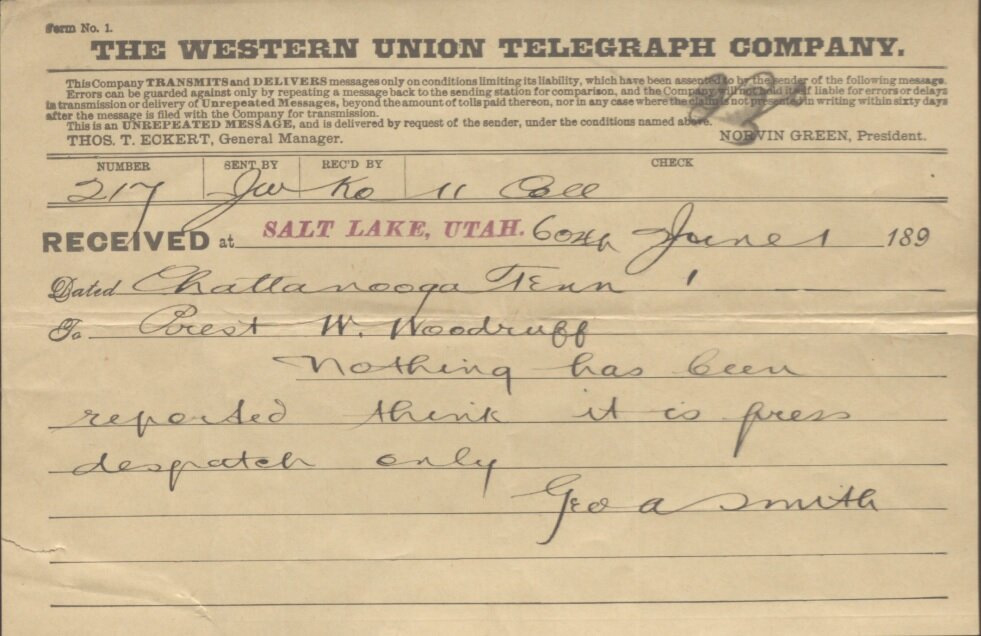 Form No. 1.
THE WESTERN UNION TELEGRAPH COMPANY.
This Company TRANSMITS and DELIVERS messages only on conditions limiting its liability, which have been assented to by the sender of the following message.
Errors can be guarded against only by repeating a message back to the sending station for comparison, and the Company will not hold itself liable for errors or delays
in transmission or delivery of Unrepeated Messages, beyond the amount of tolls paid thereon, nor in any case where the claim is not presented in writing within sixty days
after the message is filed with the Company for transmission.
This is an UNREPEATED MESSAGE, and is delivered by request of the sender, under the conditions named above.
THOS. T. ECKERT, General Manager. NORVIN GREEN, President.
NUMBER SENT BY REC'D BY CHECK
217 Jw Ko 11 Coll
RECEIVED at SALT LAKE, UTAH. June 1 189
Dated Chattanooga Tenn 1
To Prest W. Woodruff
Nothing has been
reported think it is press
despatch only
Geo A Smith